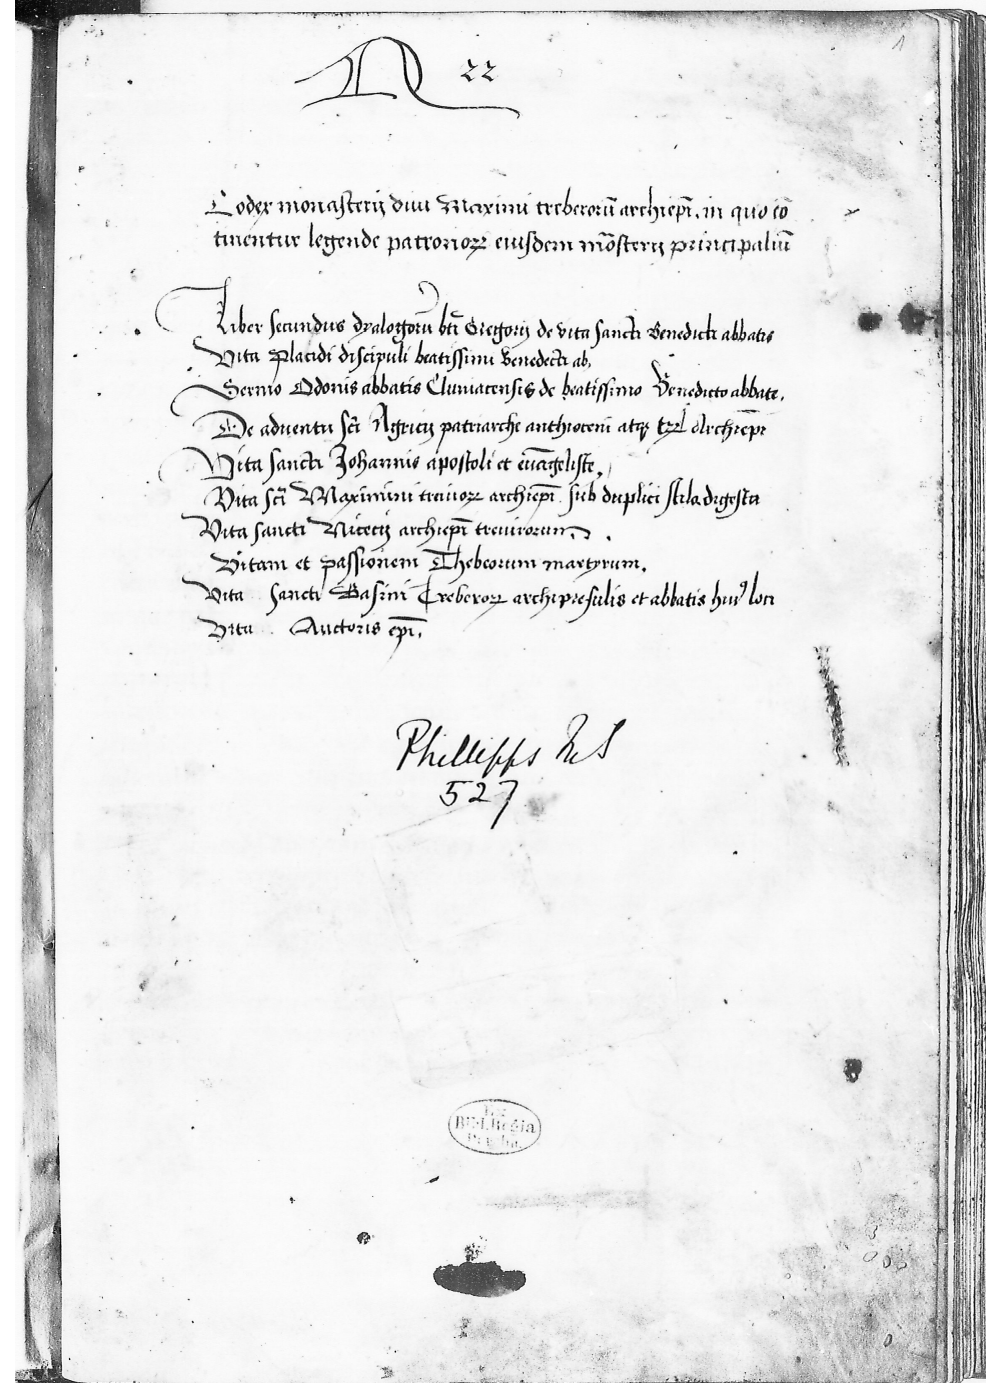 N 22
1
Codex monasterij diui Maximi treberorū archiepī. in quo cō
tinentur legende patronoꝝ eiusdem mōsterij principaliū
Liber secundus dyalogorū btī Gregorij de vita sancti Benedicti abbatis
Vita Placidi discipuli beatissimi Benedicti ab.
Sermo Odonis abbatis Cluniacensis de beatissimo Benedicto abbate.
De aduentu scī Agricij patriarche anthioceni atqꝫ Archiepī
Vita sancti Johannis apostoli et euāgeliste.
Vita scī Maximini treuiroꝝ archiepī. sub duplici stilo digesta
Vita sancti Nicetij archiepī treuirorum.
Vitam et passionem Thebeorum martyrum.
Vita sancti Basini Treberoꝝ archipresulis et abbatis huiꝰ loci
Vita Auctoris epī.
Phillipps MS
527
Ex
Bibl. Regia
Berolin.